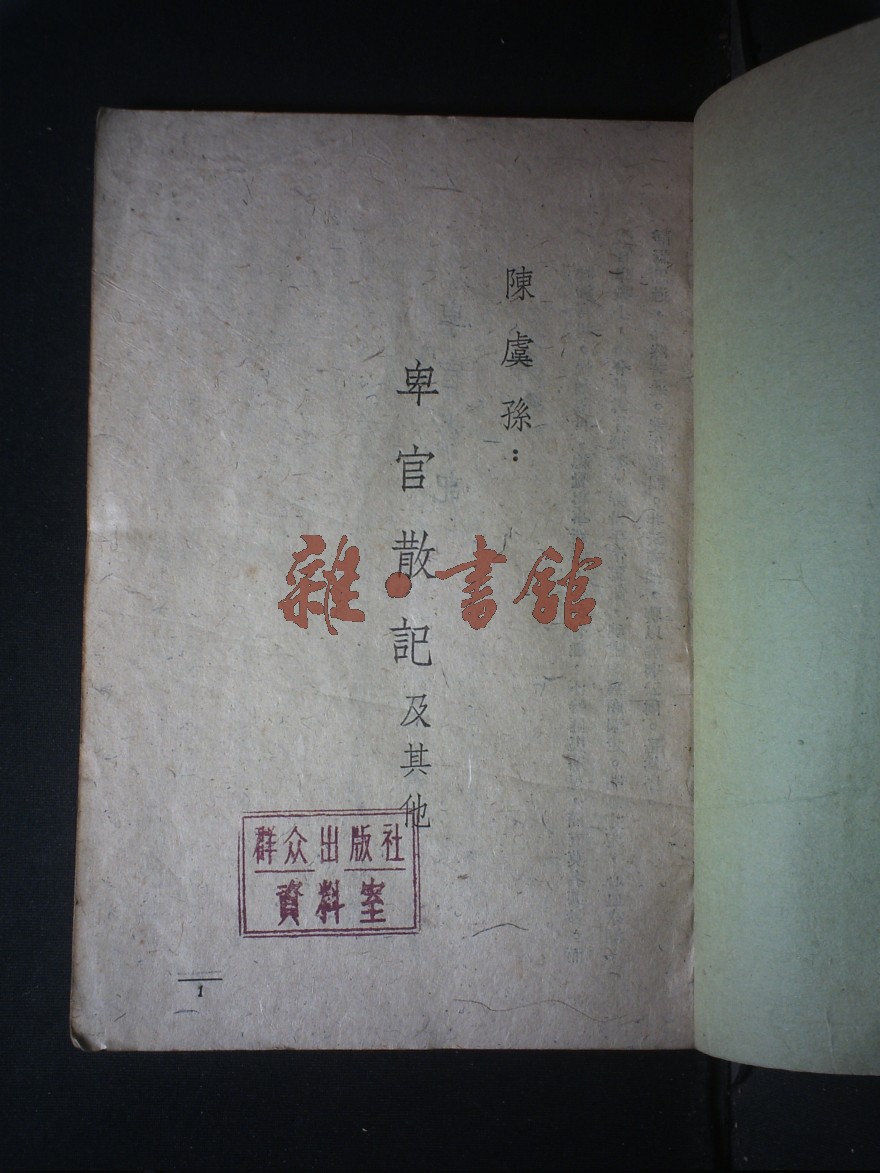 陳虞孫：
卑官散記及其他
雜·書館
群众出版社
資料室
1